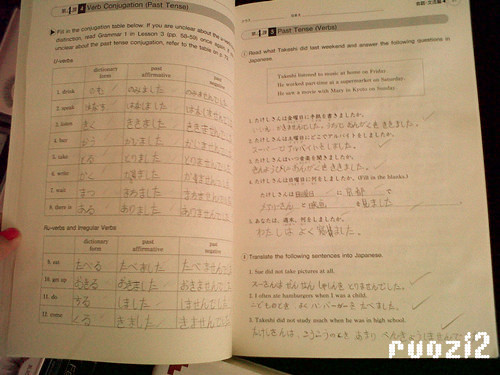 第4課 4 Verb Conjugation (Past Tense)
Fill in the conjugation table below. If you are unclear about the
distinction, read Grammar 1 in Lesson 3 (pp. 58-59) once again. If
unclear about the past tense conjugation, refer to the table on p.
U-verbs
dictionary form
past affirmative
past negative
1. drink のむ のみました のみませんでした
2. speak はなす はなしました はなしませんでした
3. listen きく ききました ききませんでした
4. buy かう かいました かいませんでした
5. take とる とりました とりませんでした
6. write かく かきました かきませんでした
7. wait まつ まちました まちませんでした
8. there is ある ありました ありませんでした
Ru-verbs and Irregular Verbs
dictionary form
past affirmative
past negative
9. eat たべる たべました たべませんでした
10. get up おきる おきました おきませんでした
11. do する しました しませんでした
12. come くる きました きませんでした
第4課 5 Past Tense (Verbs)
Read what Takeshi did last weekend and answer the following questions in
Japanese.
Takeshi listened to music at home on Friday.
He worked part-time at a supermarket on Saturday.
He saw a movie with Mary in Kyoto on Sunday.
1. たけしさんは金曜日に手紙を書きましたか。
2. たけしさんは土曜日にどこでアルバイトをしましたか。
スーパーでアルバイトをしました。
3. たけしさんはいつ音楽を聞きましたか。
4. たけしさんは日曜日に何をしましたか。(Fill in the blanks.)
たけしさんは 日曜日 に 京都 で
メアリーさん と 映画 を 見ました。
5. あなたは、週末、何をしましたか。
わたしは よく
Translate the following sentences into Japanese.
1. Sue did not take pictures at all.
スーさんは ぜんぜん しゃしんを とりませんでした。
2. I often ate hamburgers when I was a child.
こどものとき、よく ハンバーガーを たべました。
3. Takeshi did not study much when he was in high school.
たけしさんは、こうこうのとき あまり べんきょうしませんでした
ruozi2